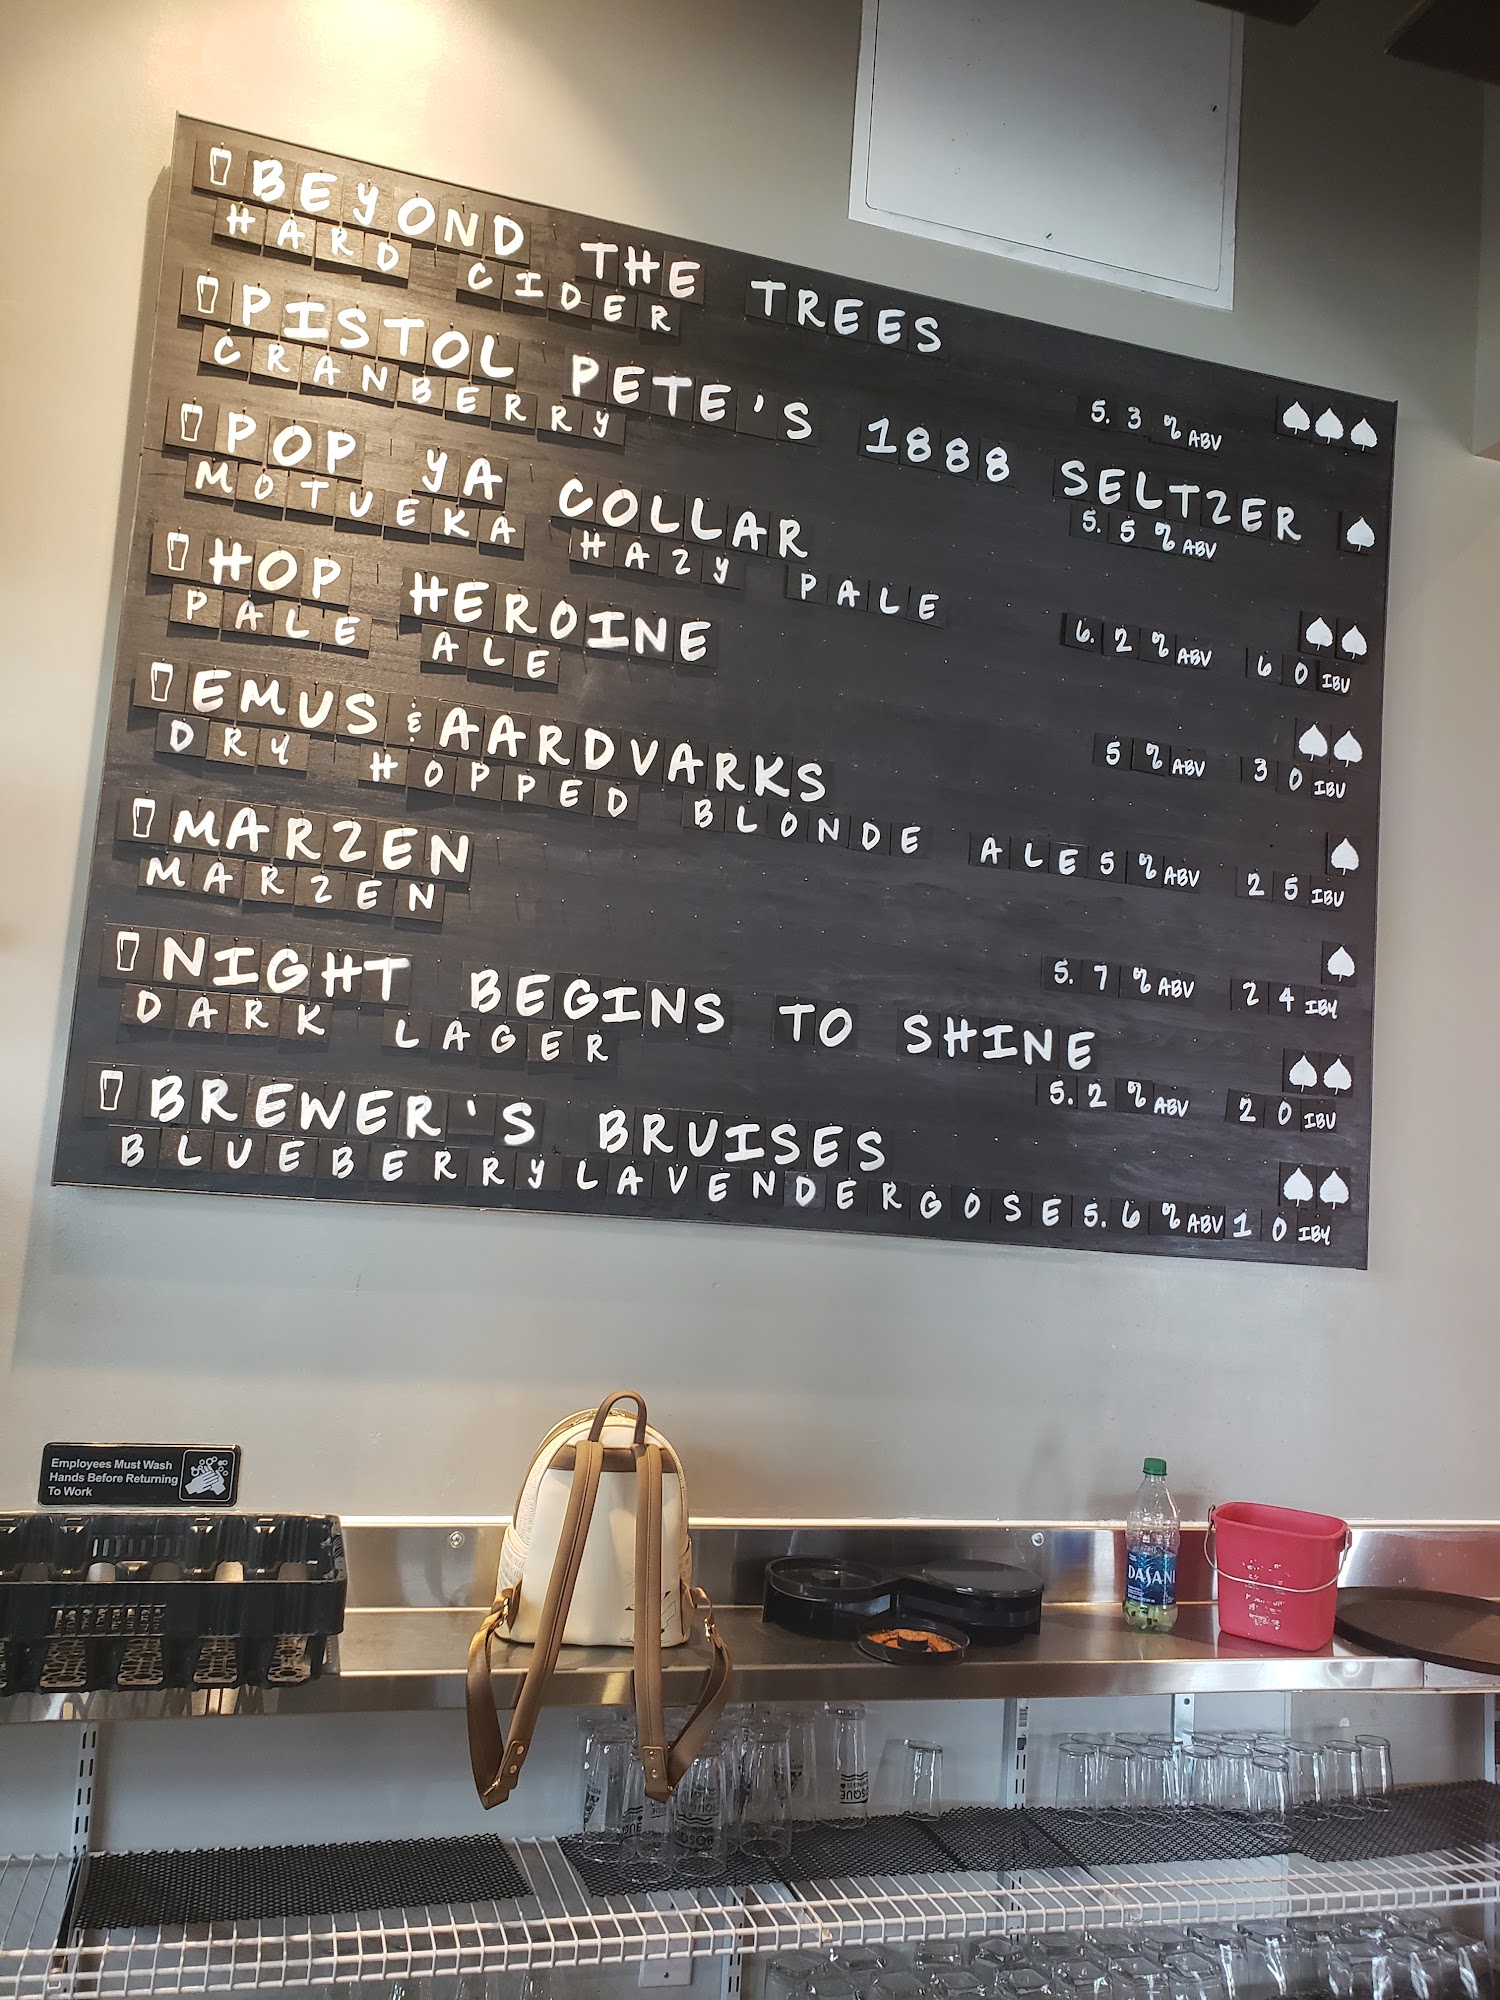 BEYOND THE TREES
HARD CIDER 5.3% ABV
PISTOL PETE'S 1888 SELTZER
CRANBERRY 5.5% ABV
POP YA COLLAR
MOTUEKA HAZY PALE 6.2% ABV 60 IBU
HOP HEROINE
PALE ALE 5% ABV 30 IBU
EMUS & AARDVARKS
DRY HOPPED BLONDE ALE 5% ABV 25 IBU
MARZEN
MARZEN 5.7% ABV 24 IBU
NIGHT BEGINS TO SHINE
DARK LAGER 5.2% ABV 20 IBU
BREWER'S BRUISES
BLUEBERRY LAVENDER GOSE 5.6% ABV 10 IBU
Employees Must Wash
Hands Before Returning
To Work
DASANI
BOSQUE